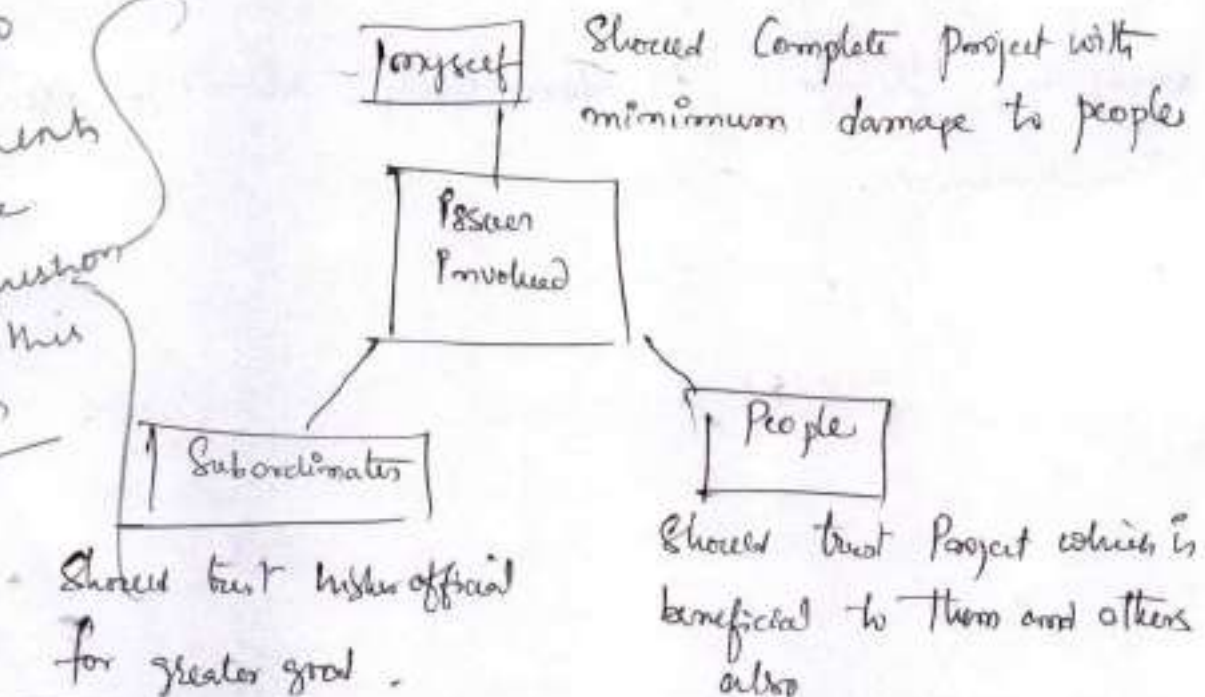 myself
Should Complete project with
minimum damage to people
Issues
Involved
this
Subordinates
People
Should trust higher official
for greater good.
Should trust Project which is
beneficial to them and others
also